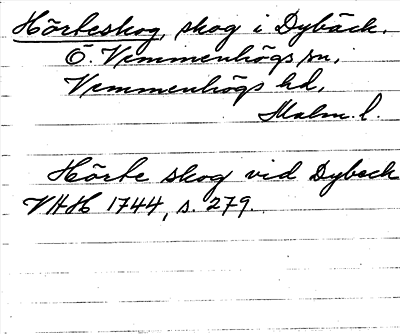 Hörteskog, skog i Dybäck.
Ö. Vemmenhögs sn,
Vemmenhögs hd,
Malm. l.
Hörte skog vid Dybeck
VHH 1744, s. 279.